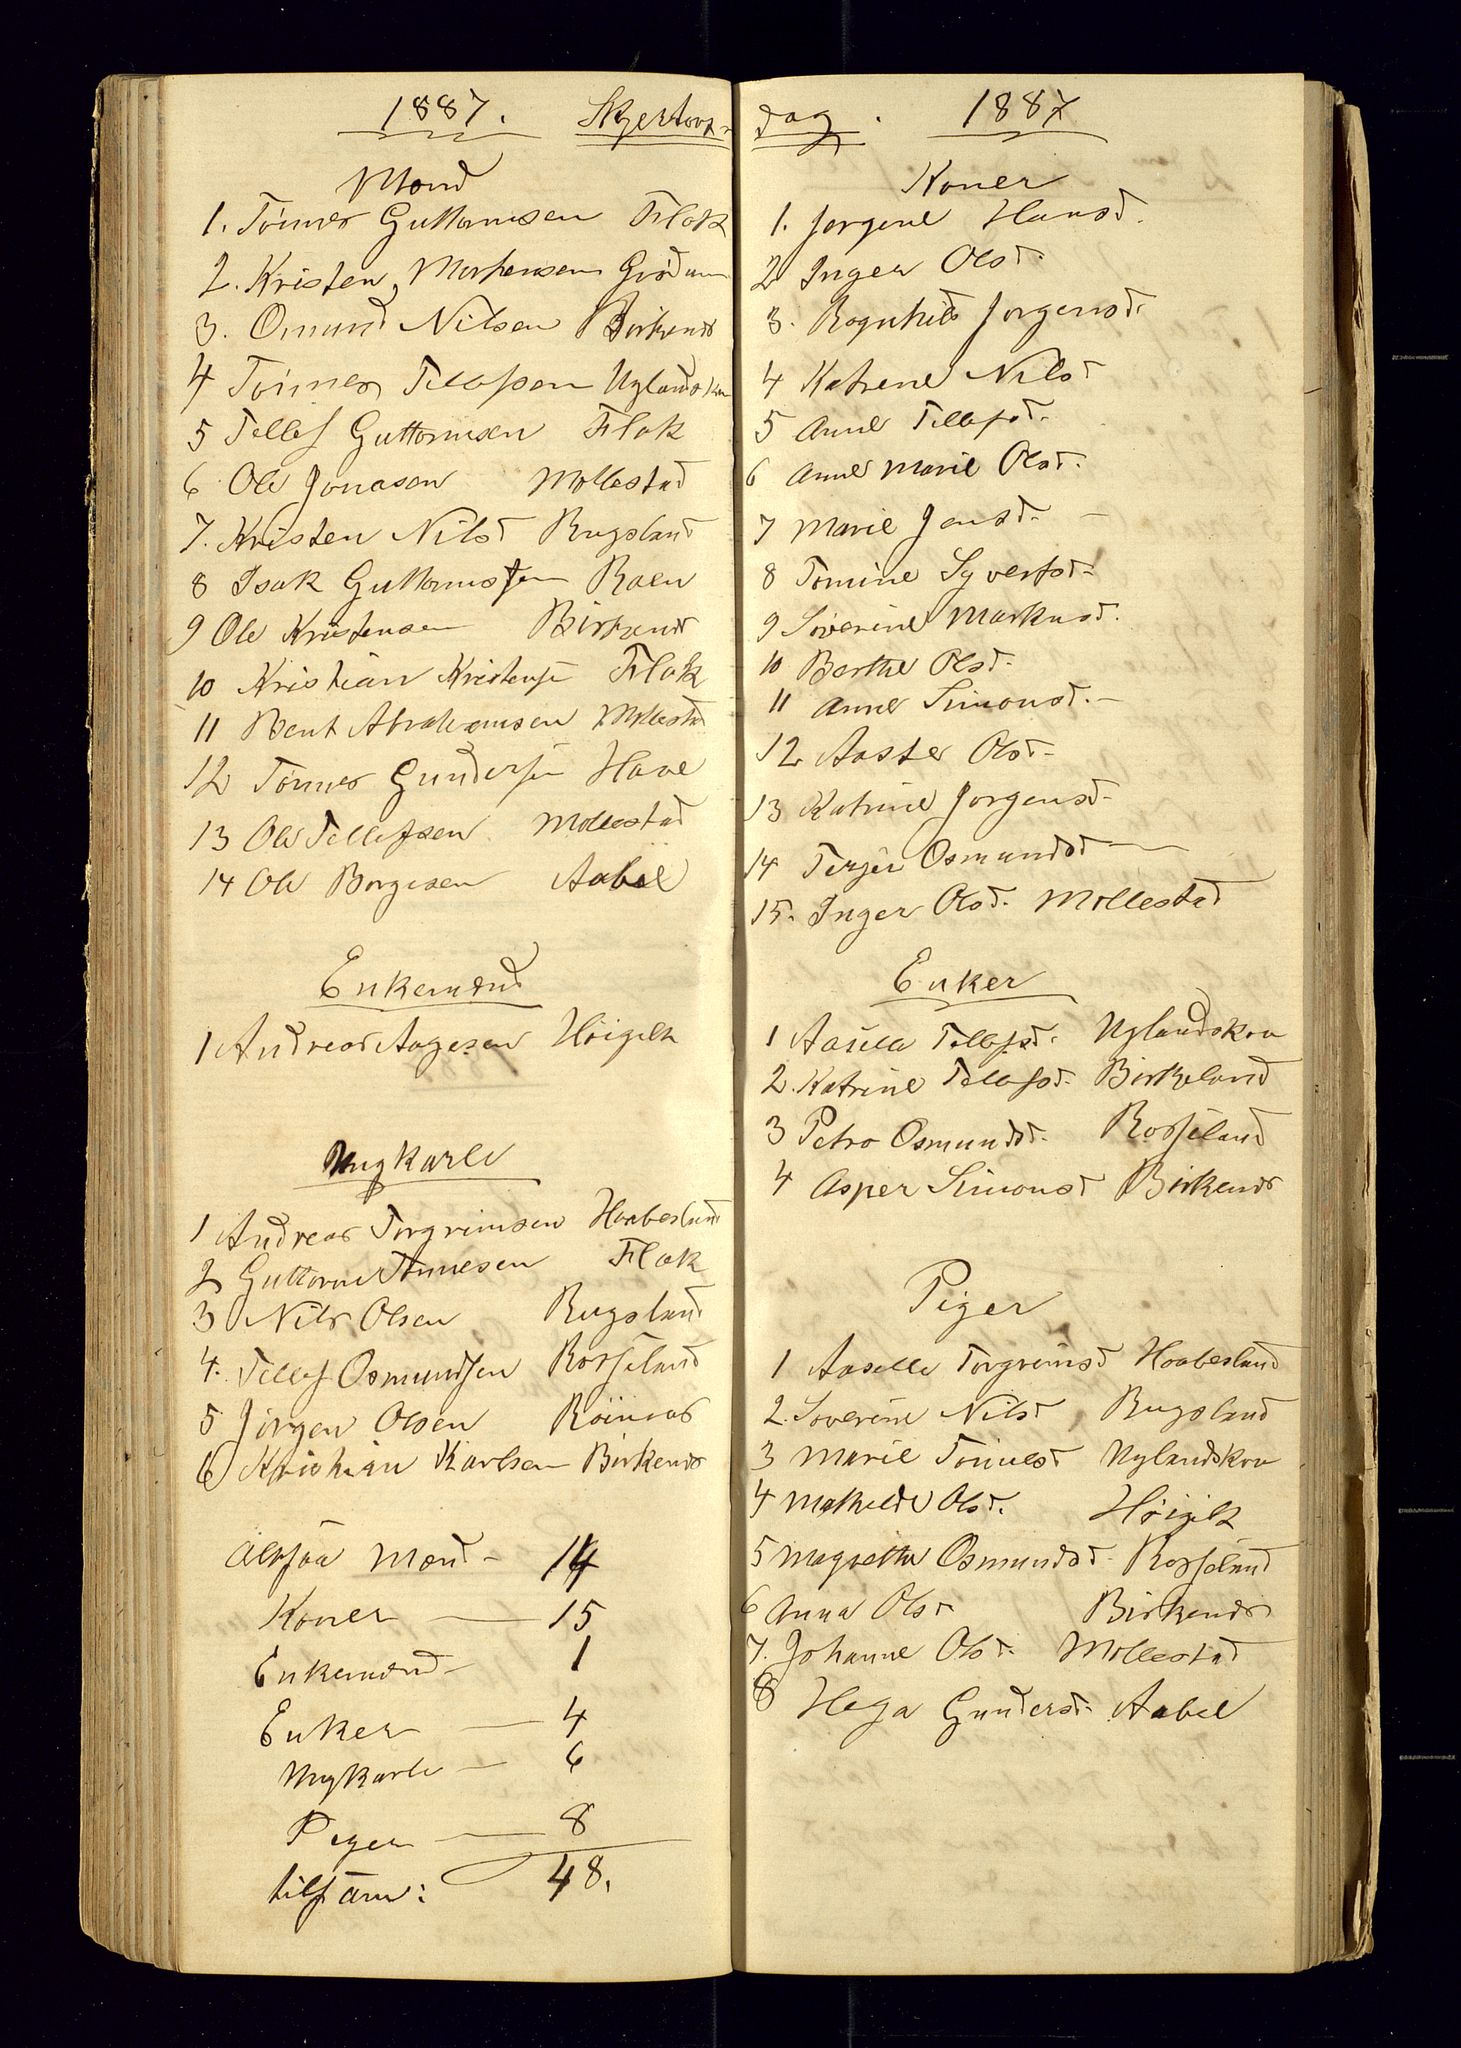 1887. Skjertorsdag. 1887
Mænd
1. Tønnes Guttormsen Flak
2. Kristen Mortensen
3. Omund Nilsen Birkenes
4 Tønnes Tellefsen Uglandskra
5 Tellef Guttormsen Flak
6 Ole Jonasen Mollestad
7. Kristen Nilsd Rugsland
8 Isak Guttormsen Raen
9 Ole Kristensen Birkenes
10 Kristian Kristensen Flak
11 Bent Abrahamsen Mollestad
12 Tønnes Gundersen Have
13 Ole Tellefsen Mollestad
14 Ole Borgesen Aabel
Enkemænd
1 Andreas Aagesen Høigilt
Ungkarle
1 Andreas Torgrimsen Haabesland
2 Guttorm Tønnesen Flak
3 Nils Olsen Rugsland
4. Tellef Osmundsen Rosseland
5 Jørgen Olsen Røinaas
6 Kristian Karlsen Birkenes
Altsaa Mænd - 14
Koner - 15
Enkemænd - 1
Enker - 4
Ungkarle - 6
Piger - 8
tilsam: 48.
Koner
1. Jørgene Hansd.
2 Inger Olsd.
3. Ragnhild Jørgensd.
4 Katrine Nilsd
5 Anne Tellefsd.
6 Anne Marie Olsd.
7 Marie Jensd. -
8 Tomine Syvertsd.
9 Severine Markusd.
10 Berthe Olsd.
11 Anne Simonsd. -
12 Aaster Olsd-
13 Katrine Jørgensd-
14 Terjer Osmundsd
15. Inger Olsd. Mollestad
Enker
1 Aasille Tellefsd. Uglandskra
2. Katrine Tellefsd. Birkeland
3 Petra Osmundsd. Rosseland
4 Asper Simonsd Birkenes
Piger
1 Aaselle Torgrimsd Haabesland
2. Severine Nilsd Rugsland
3 Marie Tønnesd Uglandskra
4 Mathilde Olsd. Høigilt
5 Magrethe Osmundsd. Rosseland
6 Anna Olsd Birkenes
7. Johanne Olsd. Mollestad
8 Helga Gundersd. Aabel